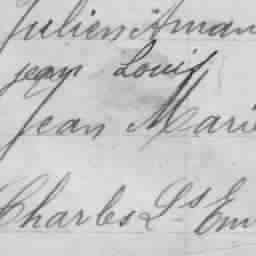 Julien Aman
jean Louis
Jean Marie
Charles Ls Em